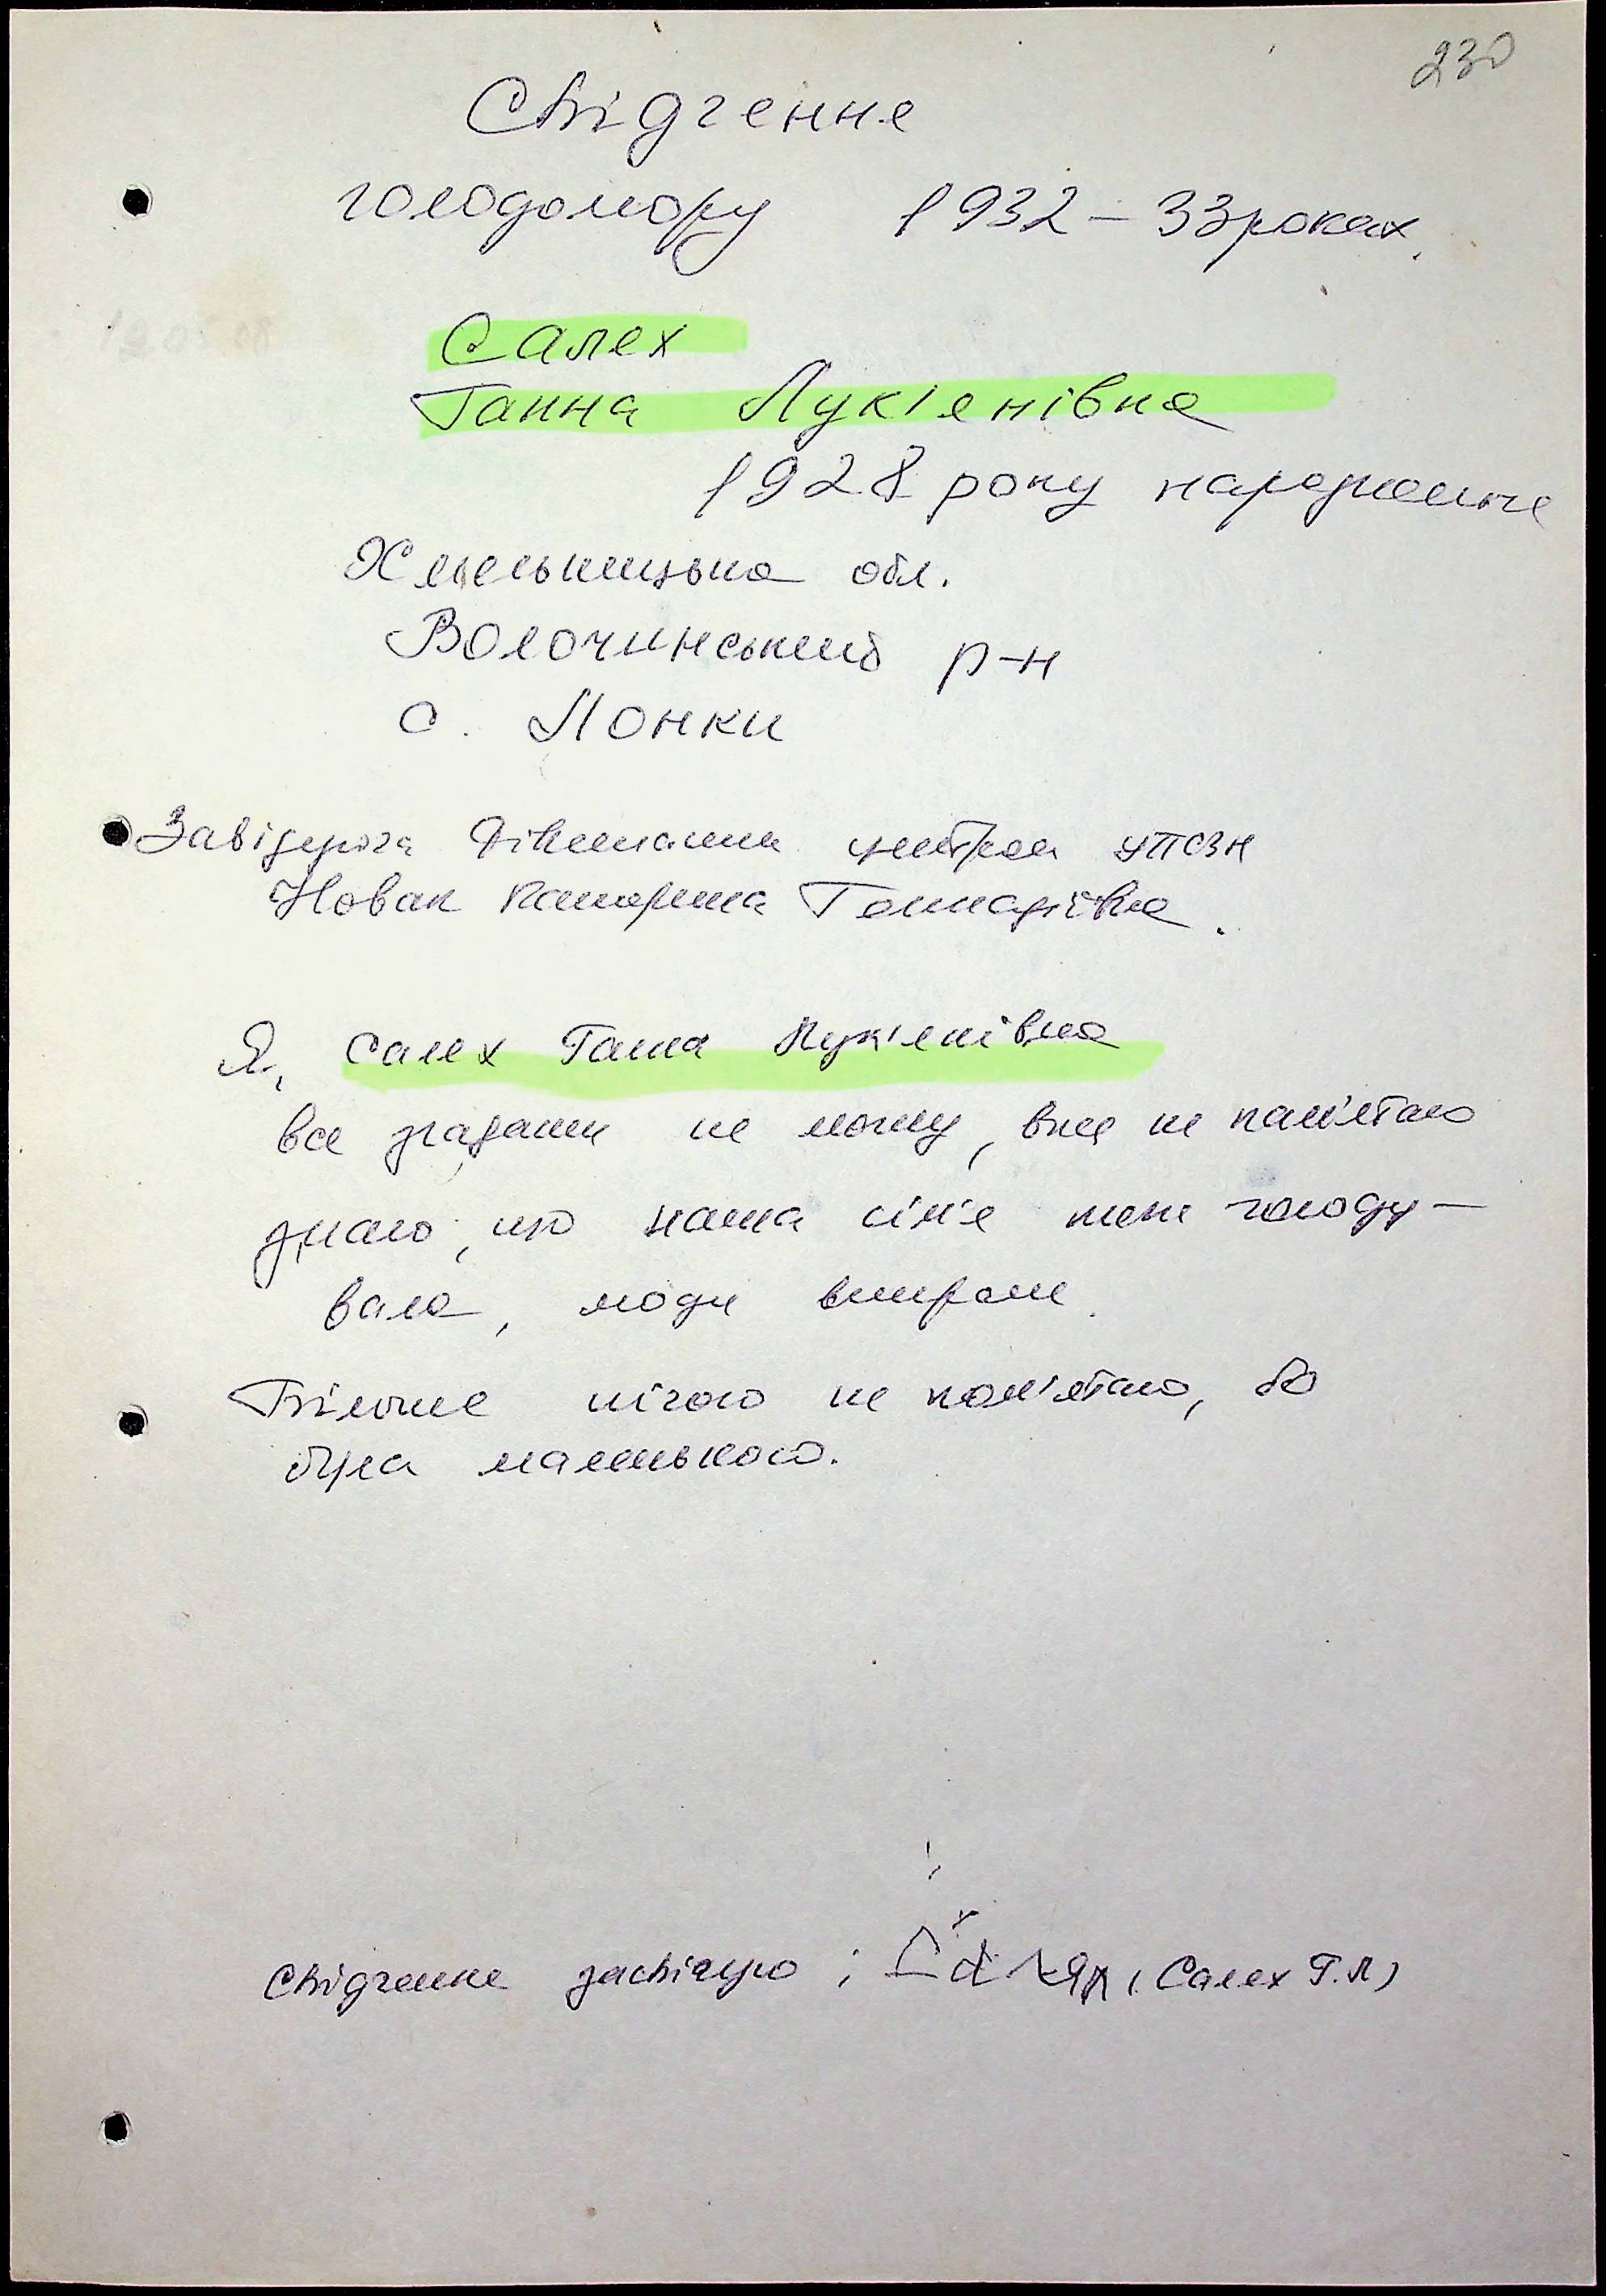 230
Свідчення
голодомору 1932-33 роках.
Салех
Ганна Лук'янівна
1928 року народження
Хмельницька обл.
Волочиський р-н
с. Лонки
Завідуюча відділення центра УПСЗН
Новак Катерина Геннадіївна.
Я, Салех Ганна Лук'янівна
все згадати не можу, вже не пам'ятаю
знаю, що наша сім'я теж голоду-
вала, люди вмирали.
Більше нічого не пам'ятаю, бо
була маленькою.
Свідчення засвідчую: (Салех Г.Л)